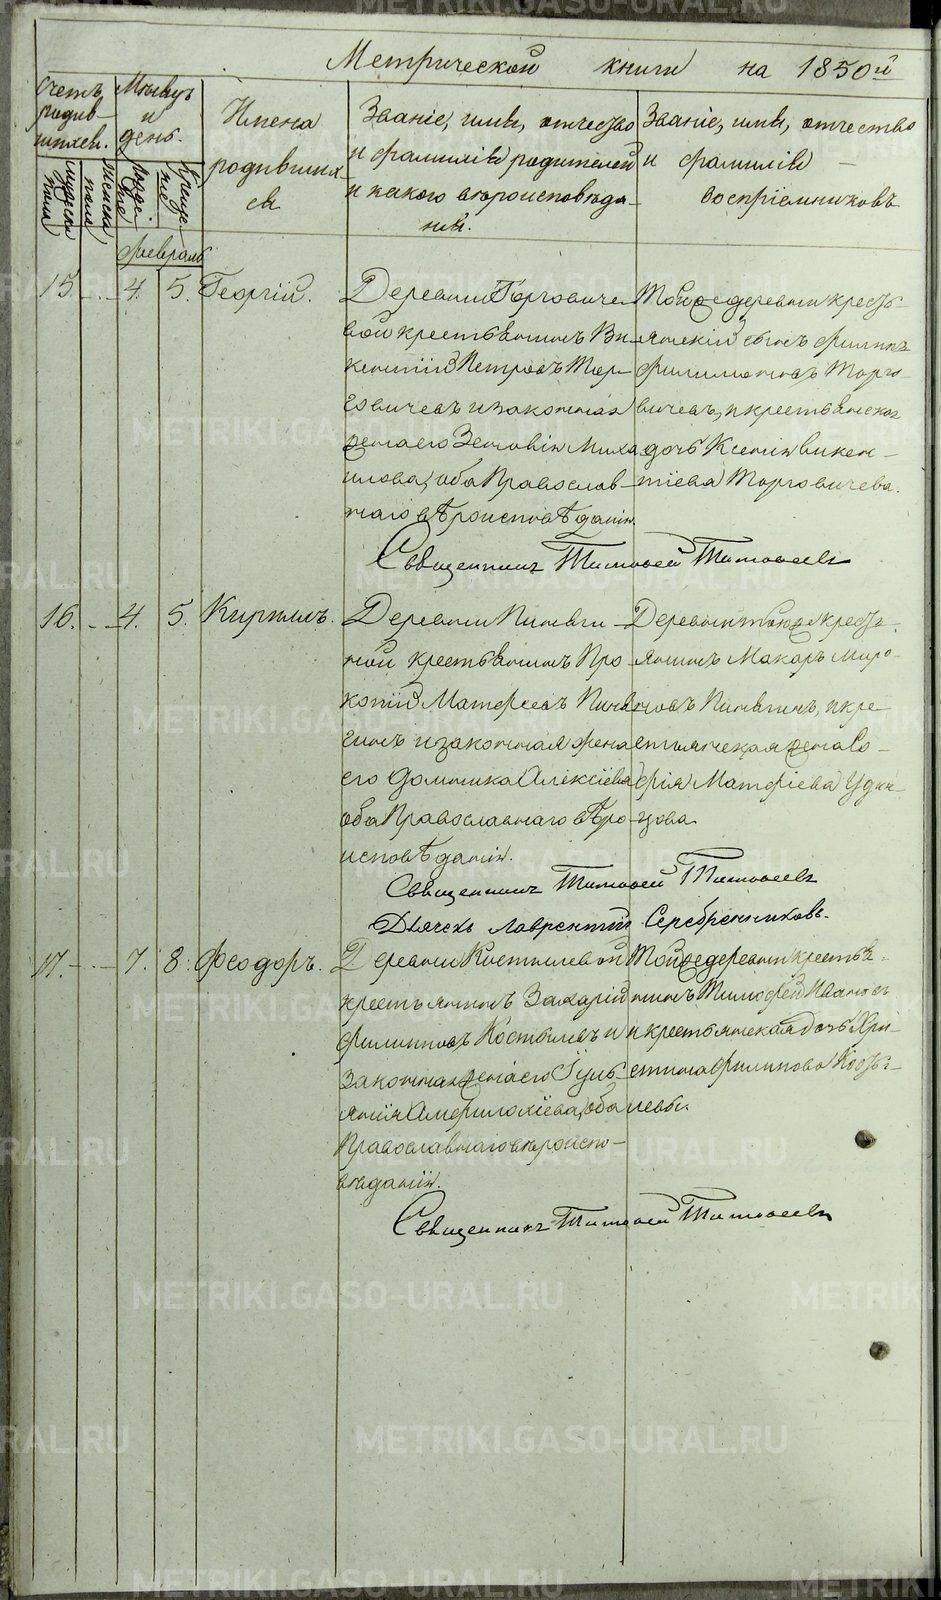 Метрической книги на 1850й
Счетъ родив-шихся.
Мѣсяцъ и день.
Имена родившихся
Званіе, имя, отчество и фамилія родителей и какого вѣроисповѣданія.
Званіе, имя, отчество и фамилія воспріемниковъ
мужеска пола
женска пола
рожденія
крещенія
февраль
15. 4. 5. Георгій.
Деревни Торговиче-
вой крестьянинъ Ви-
кентій Петровъ Тор-
говичевъ и законная
жена его Зеновія Миха
илова, оба Православ-
наго вѣроисповѣданія.
Той же деревни кресть-
янскій сынъ Филипъ
Филимоновъ Торго-
вичевъ, и крестьянская
дочь Ксенія Викен-
тіева Торговичева.
Священникъ Тимофей Тимофеевъ
16. 4. 5. Кириллъ.
Деревни Пиняги-
ной крестьянинъ Про-
копій Матфеевъ Пиня
гинъ и законная жена
его Домника Алексіева
оба Православнаго вѣро-
исповѣданія.
Деревни тойже кресть-
янинъ Макаръ Миро-
новъ Пинягинъ, и кре
стьянская жена Со-
фія Матфіева Удин-
цова.
Священникъ Тимофей Тимофеевъ
Дьячекъ Лаврентій Серебренниковъ.
17. 7. 8. Феодоръ.
Деревни Костылевой
крестьянинъ Захарій
Филиповъ Костылевъ и
законная жена его Іулі-
янія Амфилохіева, оба
Православнаго вѣроиспо-
вѣданія.
Той же деревни крестья-
нинъ Тимофей Ивановъ
и крестьянская дочь Хри-
стина Филипова Косты-
левы.
Священникъ Тимофей Тимофеевъ
METRIKI.GASO-URAL.RU